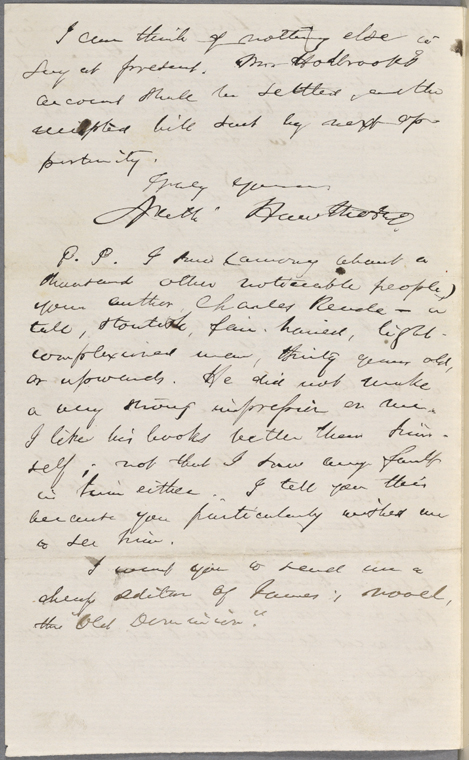 I can think of nothing else to
say at present. Mrs Holbrook's
account shall be settled, and the
receipted bill sent by next op-
portunity.
Truly Yours,
Nath' Hawthorne.
P. P. I saw (among about a
thousand other noticeable people)
your author, Charles Reade — a
tall, stoutish, fair-haired, light-
complexioned man, thirty years old,
or upwards. He did not make
a very strong impression on me.
I like his books better than him-
self; not that I saw any fault
in him either. I tell you this
because you particularly wished me
to see him.
I want you to send me a
cheap edition of James's novel,
the "Old Dominion."